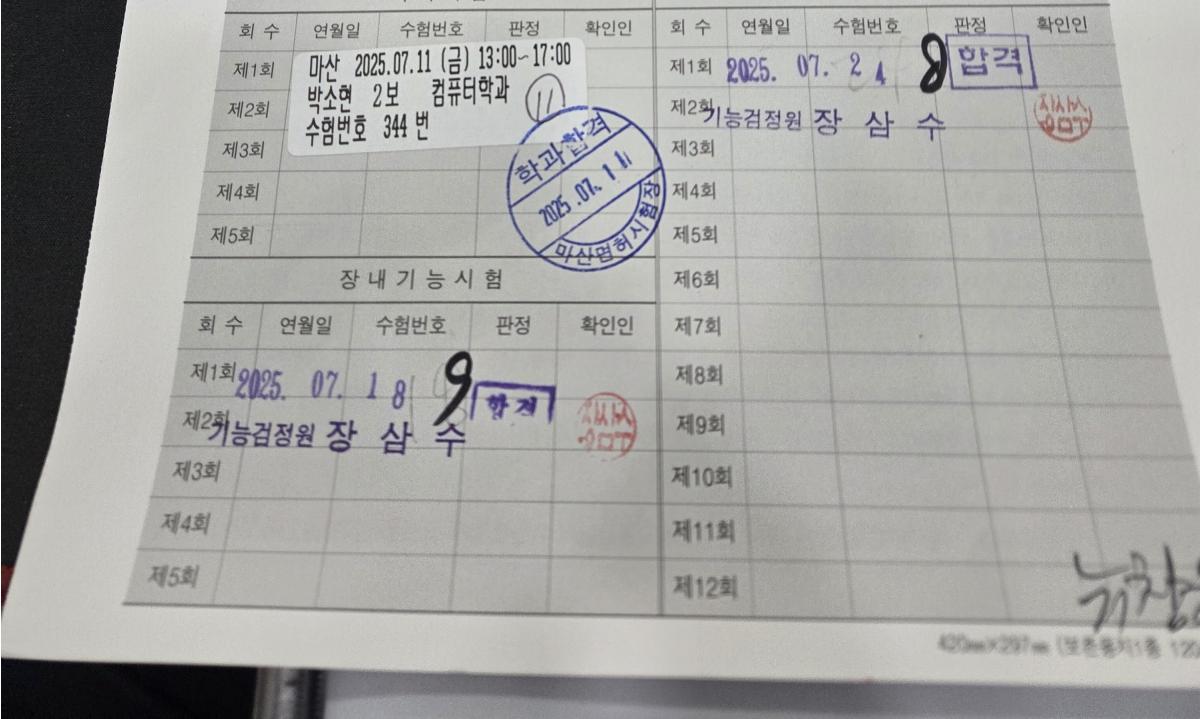 회 수 연월일 수험번호 판정 확인인
제1회
마산 2025.07.11 (금) 13:00~17:00
박소현 2보 컴퓨터학과
수험번호 344 번
11
제2회
제3회
제4회
제5회
학과합격
2025.07.11
마산면허시험장
장내기능시험
회 수 연월일 수험번호 판정 확인인
제1회 2025. 07. 18 9 합격
제2회
기능검정원 장 삼 수
제3회
제4회
제5회
회 수 연월일 수험번호 판정 확인인
제1회 2025. 07. 24 8 합격
제2회
기능검정원 장 삼 수
제3회
제4회
제5회
제6회
제7회
제8회
제9회
제10회
제11회
제12회
420㎜×297㎜ (보존용지1종 120